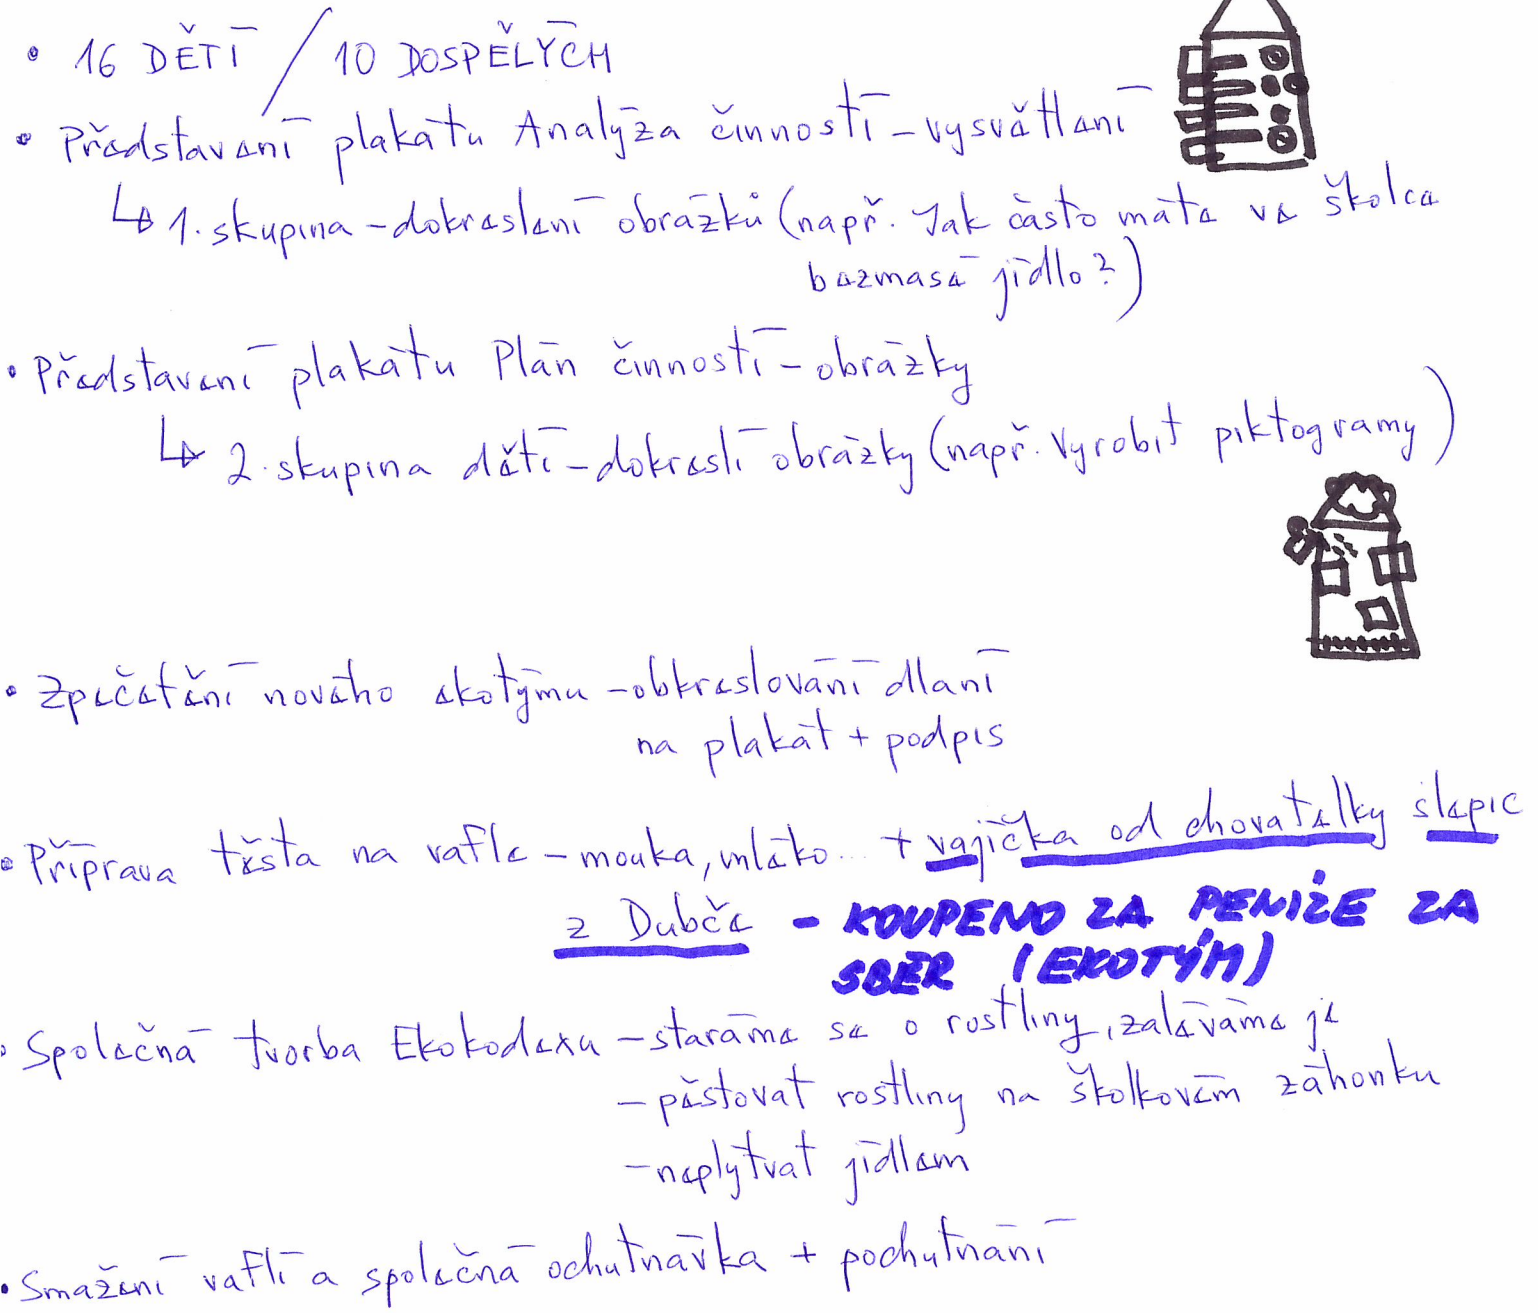 • 16 DĚTÍ / 10 DOSPĚLÝCH
• Představení plakátu Analýza činností – vysvětlení
↳ 1. skupina – dokreslení obrázků (např. Jak často máte ve školce
bezmasé jídlo?)
• Představení plakátu Plán činností – obrázky
↳ 2. skupina dětí – dokreslí obrázky (např. Vyrobit piktogramy)
• Zpečetění nového ekotýmu – obkreslování dlaní
na plakát + podpis
• Příprava těsta na vafle – mouka, mléko... + vajíčka od chovatelky slepic
z Dubče – KOUPENO ZA PENÍZE ZA
SBĚR (EKOTÝM)
• Společná tvorba Ekokodexu – staráme se o rostliny, zaléváme je
– pěstovat rostliny na školkovém záhonku
– neplýtvat jídlem
• Smažení vaflí a společná ochutnávka + pochutnání